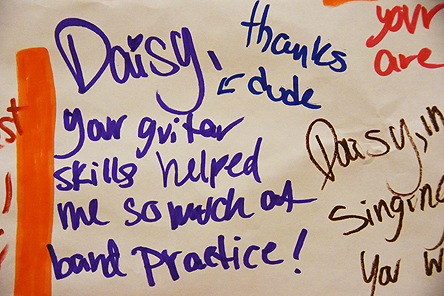 Daisy,
your guitar
skills helped
me so much at
band practice!
thanks
dude
your
are
Daisy, in
singing
you w